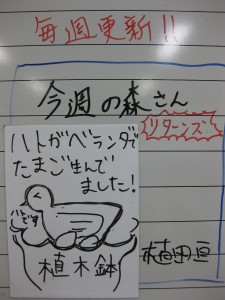 毎週更新!!
今週の森さん
リターンズ
ハトがベランダで
たまご生んで
ました!
ハトです
植木鉢
植田亘